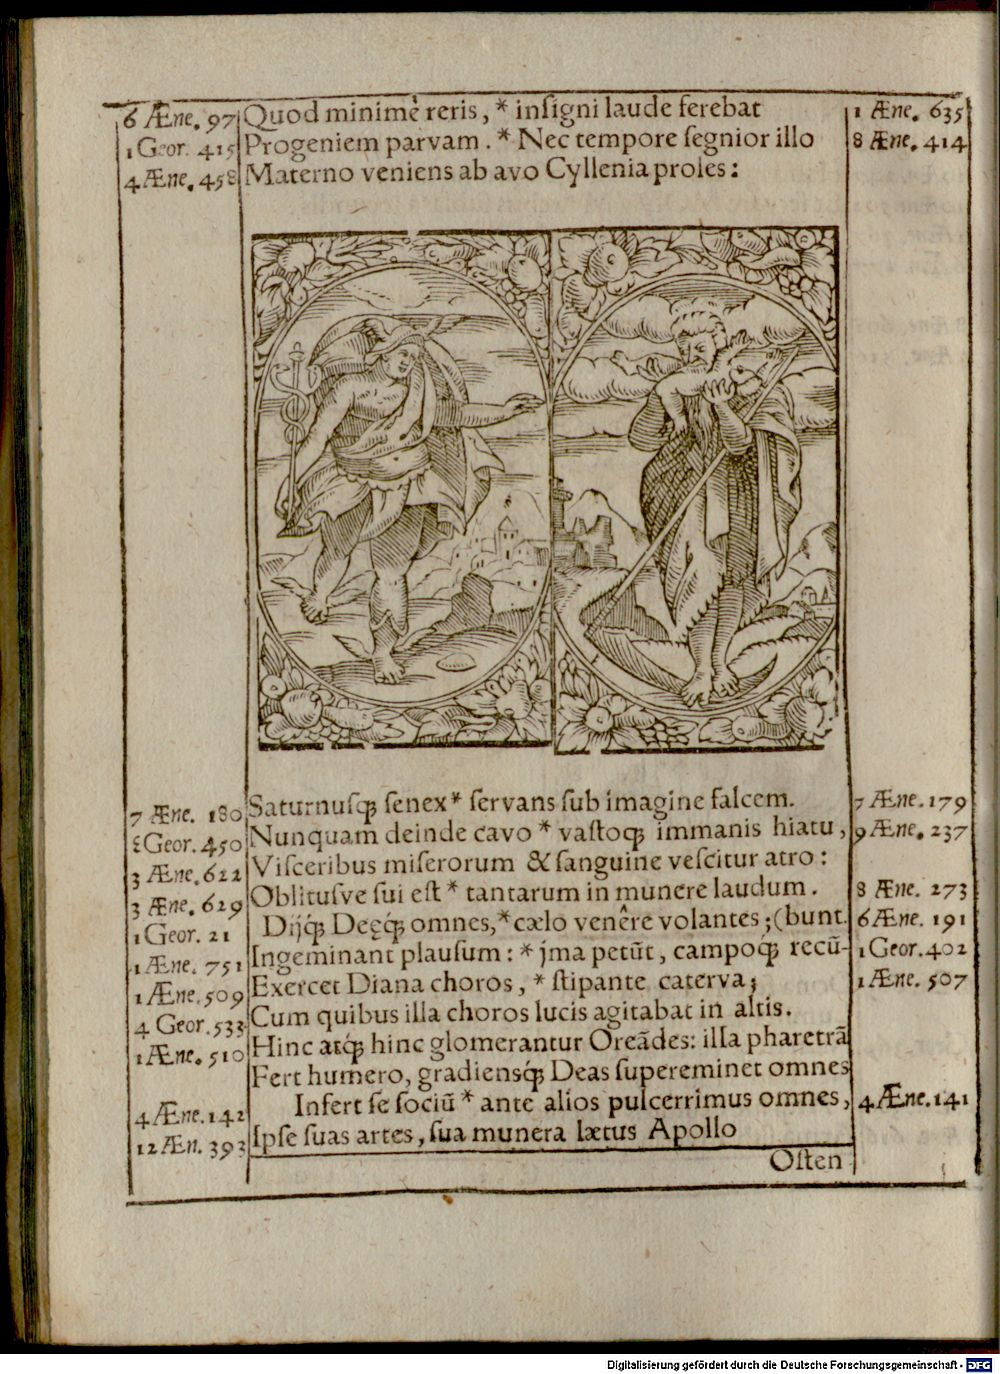 6 Æne. 97 Quod minimè reris, * insigni laude ferebat 1 Æne. 635
1 Geor. 415 Progeniem parvam. * Nec tempore segnior illo 8 Æne. 414
4 Æne. 458 Materno veniens ab avo Cyllenia proles:
7 Æne. 180 Saturnusq́; senex * servans sub imagine falcem. 7 Æne. 179
Geor. 450 Nunquam deinde cavo * vastoq́; immanis hiatu, 9 Æne. 237
3 Æne. 622 Visceribus miserorum & sanguine vescitur atro:
3 Æne. 629 Oblitusve sui est * tantarum in munere laudum. 8 Æne. 273
1 Geor. 21 Dijq́; Deęq́; omnes, * cælo venêre volantes; (bunt. 6 Æne. 191
1 Æne. 751 Ingeminant plausum: * jma petũt, campoq́; recũ- 1 Geor. 402
1 Æne. 509 Exercet Diana choros, * stipante caterva; 1 Æne. 507
4 Geor. 533 Cum quibus illa choros lucis agitabat in altis.
1 Æne. 510 Hinc atq́; hinc glomerantur Oreãdes: illa pharetrã
Fert humero, gradiensq́; Deas supereminet omnes
4 Æne. 142 Infert se sociũ * ante alios pulcerrimus omnes, 4 Æne. 141
12 Æn. 393 Ipse suas artes, sua munera lætus Apollo
Osten
Digitalisierung gefördert durch die Deutsche Forschungsgemeinschaft - DFG